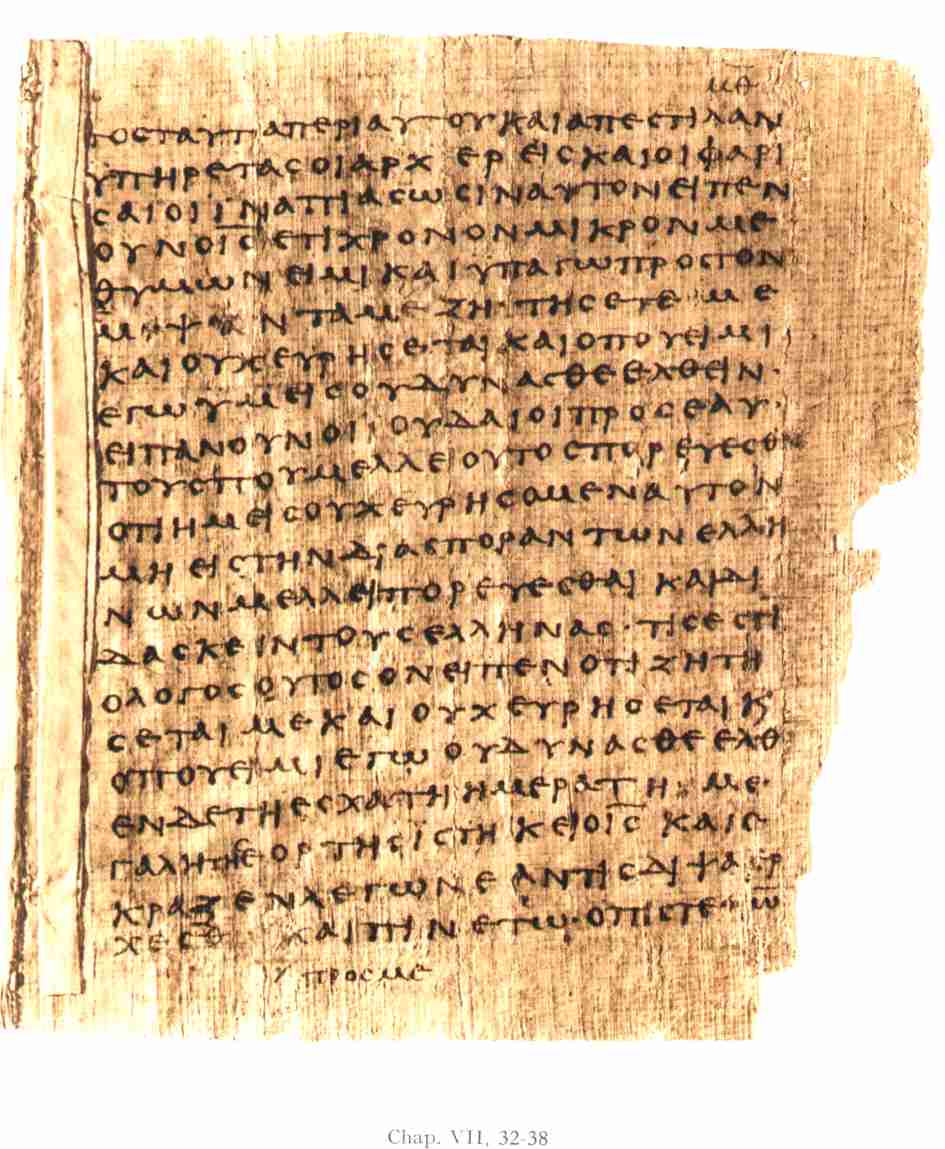 μθ
τος ταυτα περι αυτου και απεστιλαν
υπηρετας οι αρχιερεις και οι φαρι
σαιοι ϊνα πιασωσιν αυτον ειπεν
ουν ο ι̅ς̅ ετι χρονον μικρον με
θ υμων ειμι και υπαγω προς τον
με ζητησετε με
και ουχ ευρησεται και οπου ειμι
εγω υμεις ου δυνασθε ελθειν·
ειπαν ουν οι ϊουδαιοι προς εαυ
τους που μελλει ουτος πορευεσθαι
οτι ημεις ουχ ευρησομεν αυτον
μη εις την διασποραν των ελλη
νων μελλει πορευεσθαι και δι
δασκειν τους ελληνας· τις εστι
ο λογος ουτος ον ειπεν οτι ζητη
σεται με και ουχ ευρησεται κ
οπου ειμι εγω ου δυνασθε ελθ
εν δε τη εσχατη ημερα τη με
γαλη της εορτης ϊστηκει ο ι̅ς̅ και ε
κραζεν λεγων εαν τις διψα ερ
χεσθω και πινετω· ο πιστευων
προς με
Chap. VII, 32-38